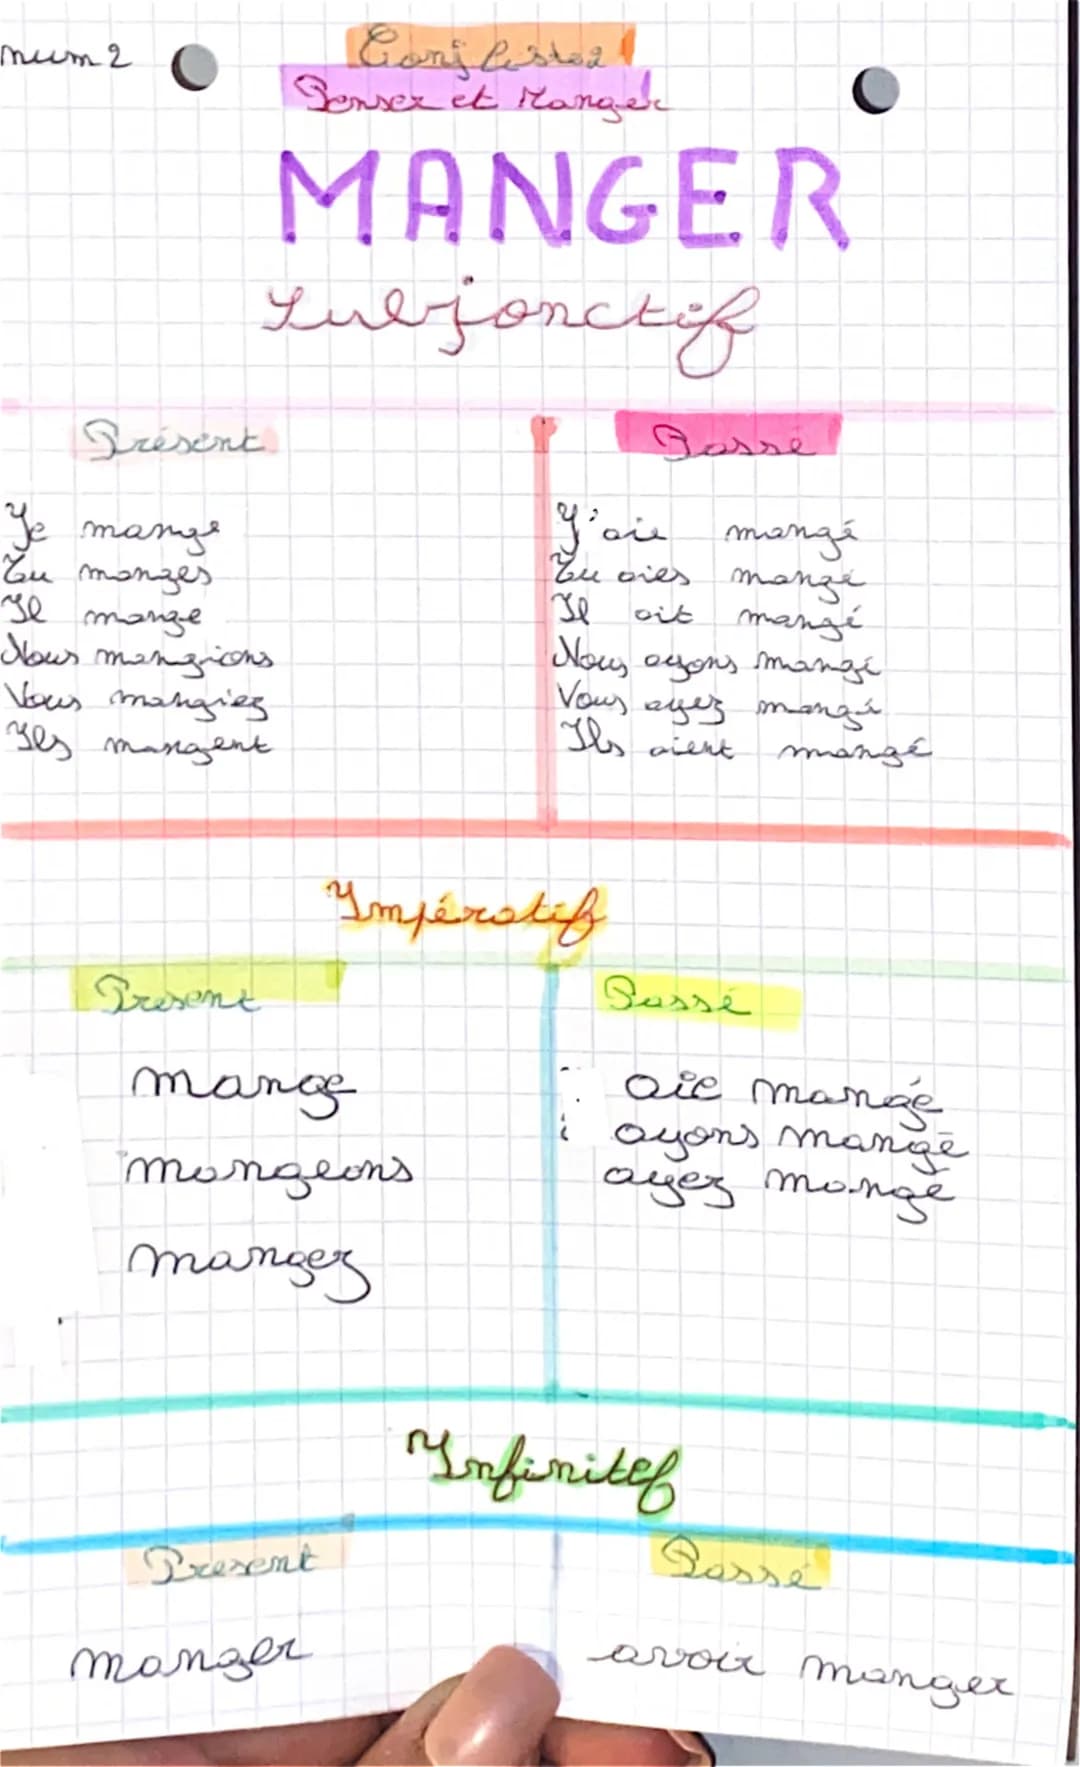 num 2
Conj liste 2
Penser et Manger
MANGER
Subjonctif
Présent
Passé
Je mange
Tu manges
Il mange
Nous mangions
Vous mangiez
Ils mangent
J'aie mangé
Tu aies mangé
Il ait mangé
Nous ayons mangé
Vous ayez mangé
Ils aient mangé
Impératif
Present
Passé
mange
mangeons
mangez
aie mangé
ayons mangé
ayez mangé
Infinitif
Present
Passé
manger
avoir manger